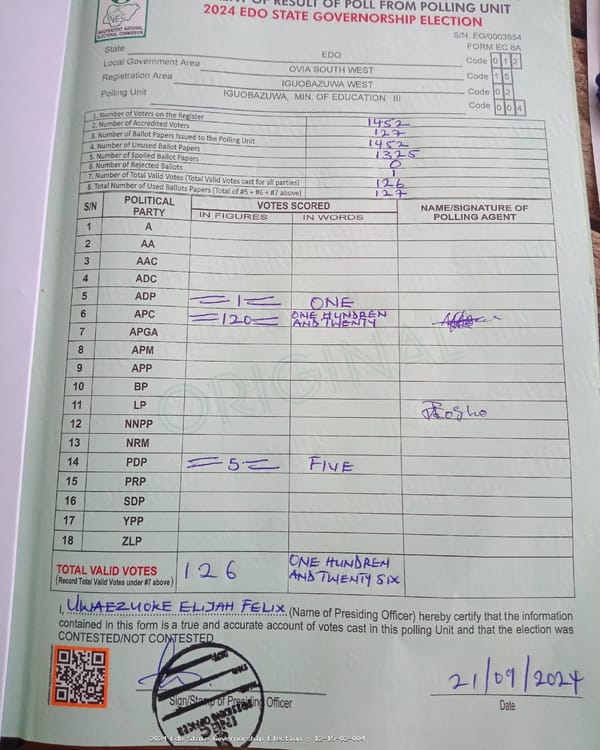 OF RESULT OF POLL FROM POLLING UNIT
2024 EDO STATE GOVERNORSHIP ELECTION
INEC
INDEPENDENT NATIONAL ELECTORAL COMMISSION
S/N: EG/0003854
FORM EC 8A
State EDO Code 0 1 2
Local Government Area OVIA SOUTH WEST Code 1 5
Registration Area IGUOBAZUWA WEST Code 0 2
Polling Unit IGUOBAZUWA, MIN. OF EDUCATION III Code 0 0 4
1. Number of Voters on the Register 1452
2. Number of Accredited Voters 127
3. Number of Ballot Papers Issued to the Polling Unit 1452
4. Number of Unused Ballot Papers 1325
5. Number of Spoiled Ballot Papers 0
6. Number of Rejected Ballots 1
7. Number of Total Valid Votes (Total Valid Votes cast for all parties) 126
8. Total Number of Used Ballots Papers (Total of #5 + #6 + #7 above) 127
S/N POLITICAL PARTY VOTES SCORED NAME/SIGNATURE OF POLLING AGENT
IN FIGURES IN WORDS
1 A
2 AA
3 AAC
4 ADC
5 ADP =1= ONE
6 APC =120= ONE HUNDREN AND TWENTY
7 APGA
8 APM
9 APP
10 BP
11 LP
12 NNPP
13 NRM
14 PDP =5= FIVE
15 PRP
16 SDP
17 YPP
18 ZLP
ORIGINAL
TOTAL VALID VOTES 126 ONE HUNDREN AND TWENTY SIX
(Record Total Valid Votes under #7 above)
I, UWAEZUOKE ELIJAH FELIX (Name of Presiding Officer) hereby certify that the information
contained in this form is a true and accurate account of votes cast in this polling Unit and that the election was
CONTESTED/NOT CONTESTED
21/09/2024
Sign/Stamp of Presiding Officer
Date
2024 Edo State Governorship Election : 12-15-02-004